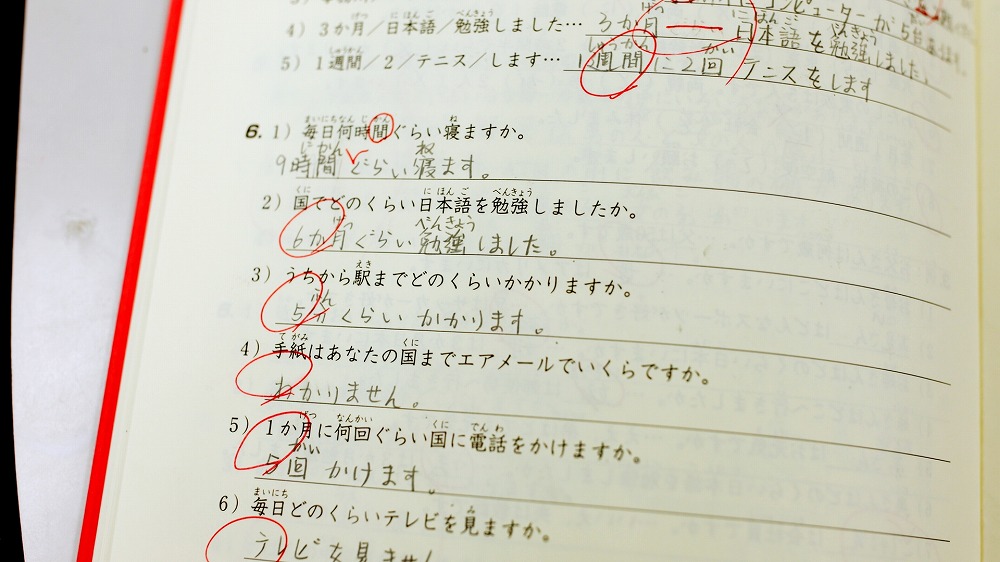 4) 3か月/日本語/勉強しました… 3か月 日本語を勉強しました。
5) 1週間/2/テニス/します… 1週間に2回 テニスをします
6. 1) 毎日何時間ぐらい寝ますか。
9時間ぐらい寝ます。
2) 国でどのくらい日本語を勉強しましたか。
6か月ぐらい勉強しました。
3) うちから駅までどのくらいかかりますか。
5分くらいかかります。
4) 手紙はあなたの国までエアメールでいくらですか。
わかりません。
5) 1か月に何回ぐらい国に電話をかけますか。
5回かけます。
6) 毎日どのくらいテレビを見ますか。
テレビを見ません